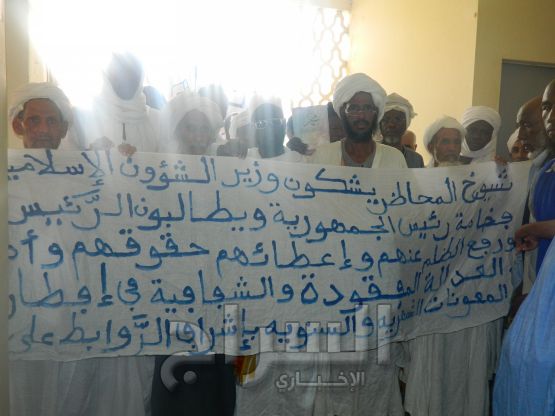 شيوخ المحاظر يشكون وزير الشؤون الإسلامية
فخامة رئيس الجمهورية ويطالبون الرَّئيس
ورفع الظلم عنهم وإعطائهم حقوقهم وأ
العدالة المفقودة والشفافية في إفطار
المعونات والسنوية بإشراف الرَّوابط على
السراج
الإخباري